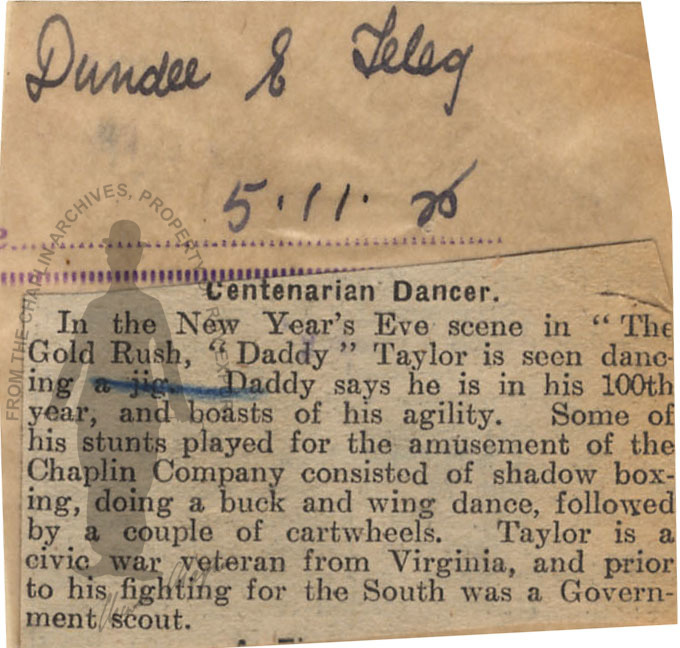 Dundee E Teleg
5.11.25
Centenarian Dancer.
In the New Year's Eve scene in "The
Gold Rush, "Daddy" Taylor is seen danc-
ing a jig. Daddy says he is in his 100th
year, and boasts of his agility. Some of
his stunts played for the amusement of the
Chaplin Company consisted of shadow box-
ing, doing a buck and wing dance, followed
by a couple of cartwheels. Taylor is a
civic war veteran from Virginia, and prior
to his fighting for the South was a Govern-
ment scout.
FROM THE CHAPLIN ARCHIVES, PROPERTY